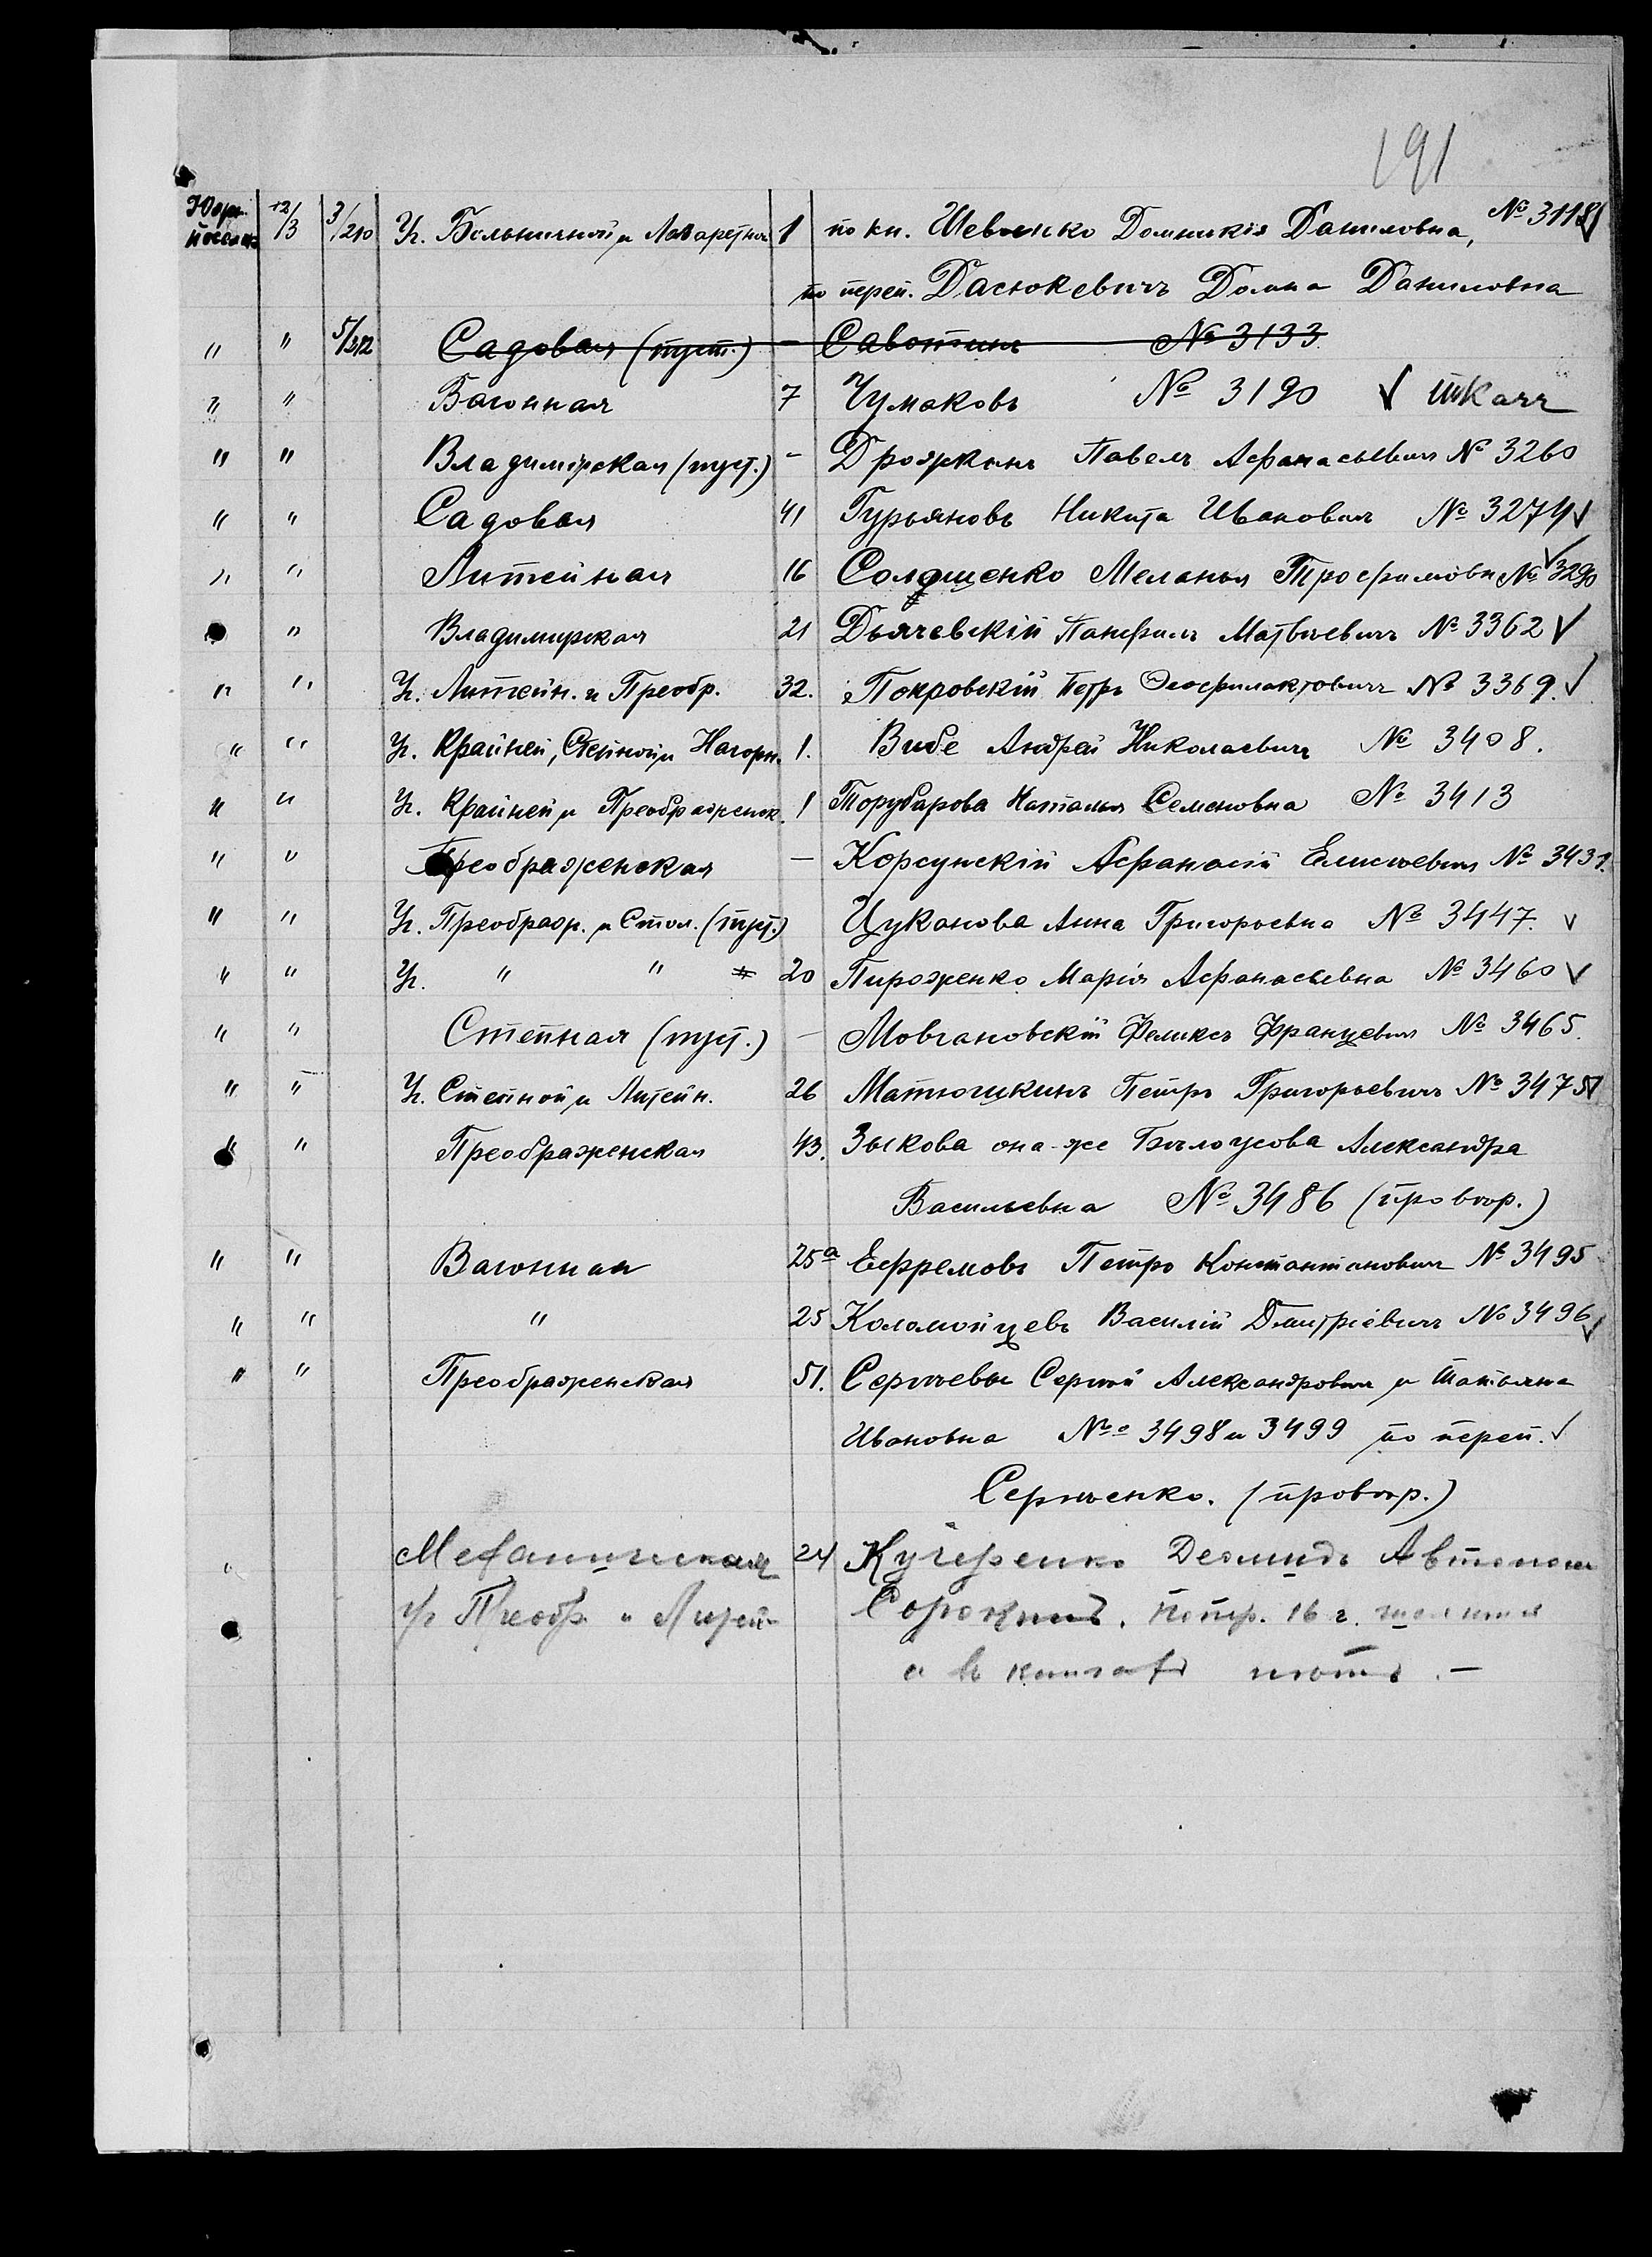 191
Юрк. поселк. 12/3 3/210 Уг. Больничной и Лазаретной 1 по кн. Шевченко Домникія Даниловна, № 3118
по переп. Дасюкевичъ Домна Даниловна
" " 5/212 Садовая (пуст.) - Савотинъ № 3133
" " Вагонная 7 Чумаковъ № 3190 ткачъ
" " Владимірская (пуст.) - Дрожжинъ Павелъ Афанасьевичъ № 3260
" " Садовая 41 Гурьяновъ Никита Ивановичъ № 3274
" " Литейная 16 Солдщенко Меланья Трофимовн № 3290
" Владимирская 21 Дьячевскій Панфилъ Матвѣевичъ № 3362
" " Уг. Литейн. и Преобр. 32. Покровскій Петръ Феофилактовичъ № 3369.
" " Уг. Крайней, Степной и Нагорн. 1. Виде Андрей Николаевичъ № 3408.
" " Уг. Крайней и Преображенск. 1 Торубарова Наталья Семеновна № 3413
" " Преображенская — Корсунскій Афанасій Елисѣевичъ № 3431.
" " Уг. Преображ. и Степ. (пуст.) Цуканова Анна Григорьевна № 3447.
" " Уг. " " 20 Пироженко Марія Афанасьевна № 3460
" " Степная (пуст.) — Мовчановскій Феликсъ Францевичъ № 3465.
" " Уг. Степной и Литейн. 26 Матюшкинъ Петръ Григорьевичъ № 3475
" " Преображенская 43. Зыкова она-же Бѣлоусова Александра
Васильевна № 3486 (провѣр.)
" " Вагонная 25а Ефремовъ Петръ Константиновичъ № 3495
" " " 25 Коломойцевъ Василій Дмитріевичъ № 3496
" " Преображенская 51. Сергѣевы Сергѣй Александровичъ и Татьяна
Ивановна №№ 3498 и 3499 по переп.
Сергѣенко. (провѣр.)
" Механическая 24 Кучеренко Деомидъ Автоном
уг Преобр. и Литей Сорокинъ. Петр. 16 г.
а въ книгахъ нѣтъ. —